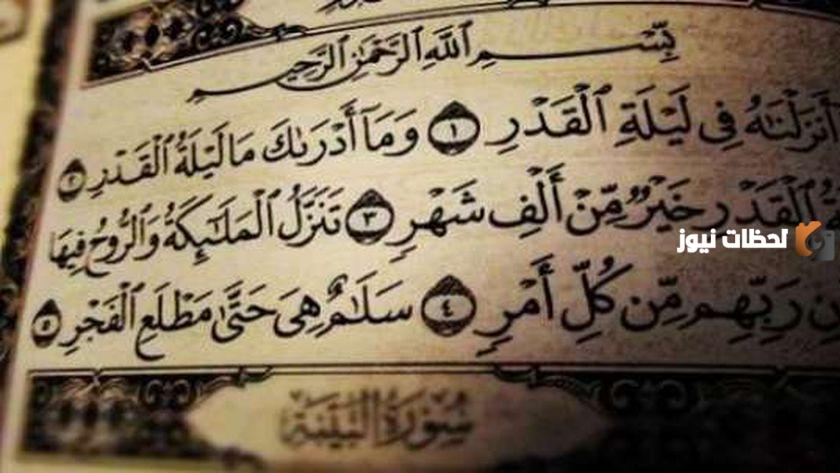 بِسْمِ ٱللَّهِ ٱلرَّحْمَٰنِ ٱلرَّحِيمِ
أَنزَلْنَٰهُ فِى لَيْلَةِ ٱلْقَدْرِ ١ وَمَآ أَدْرَىٰكَ مَا لَيْلَةُ ٱلْقَدْرِ ٢
ٱلْقَدْرِ خَيْرٌ مِّنْ أَلْفِ شَهْرٍ ٣ تَنَزَّلُ ٱلْمَلَٰٓئِكَةُ وَٱلرُّوحُ فِيهَا
لحظات نيوز
رَبِّهِم مِّن كُلِّ أَمْرٍ ٤ سَلَٰمٌ هِىَ حَتَّىٰ مَطْلَعِ ٱلْفَجْرِ ٥
سُورَةُ البَيِّنَةِ